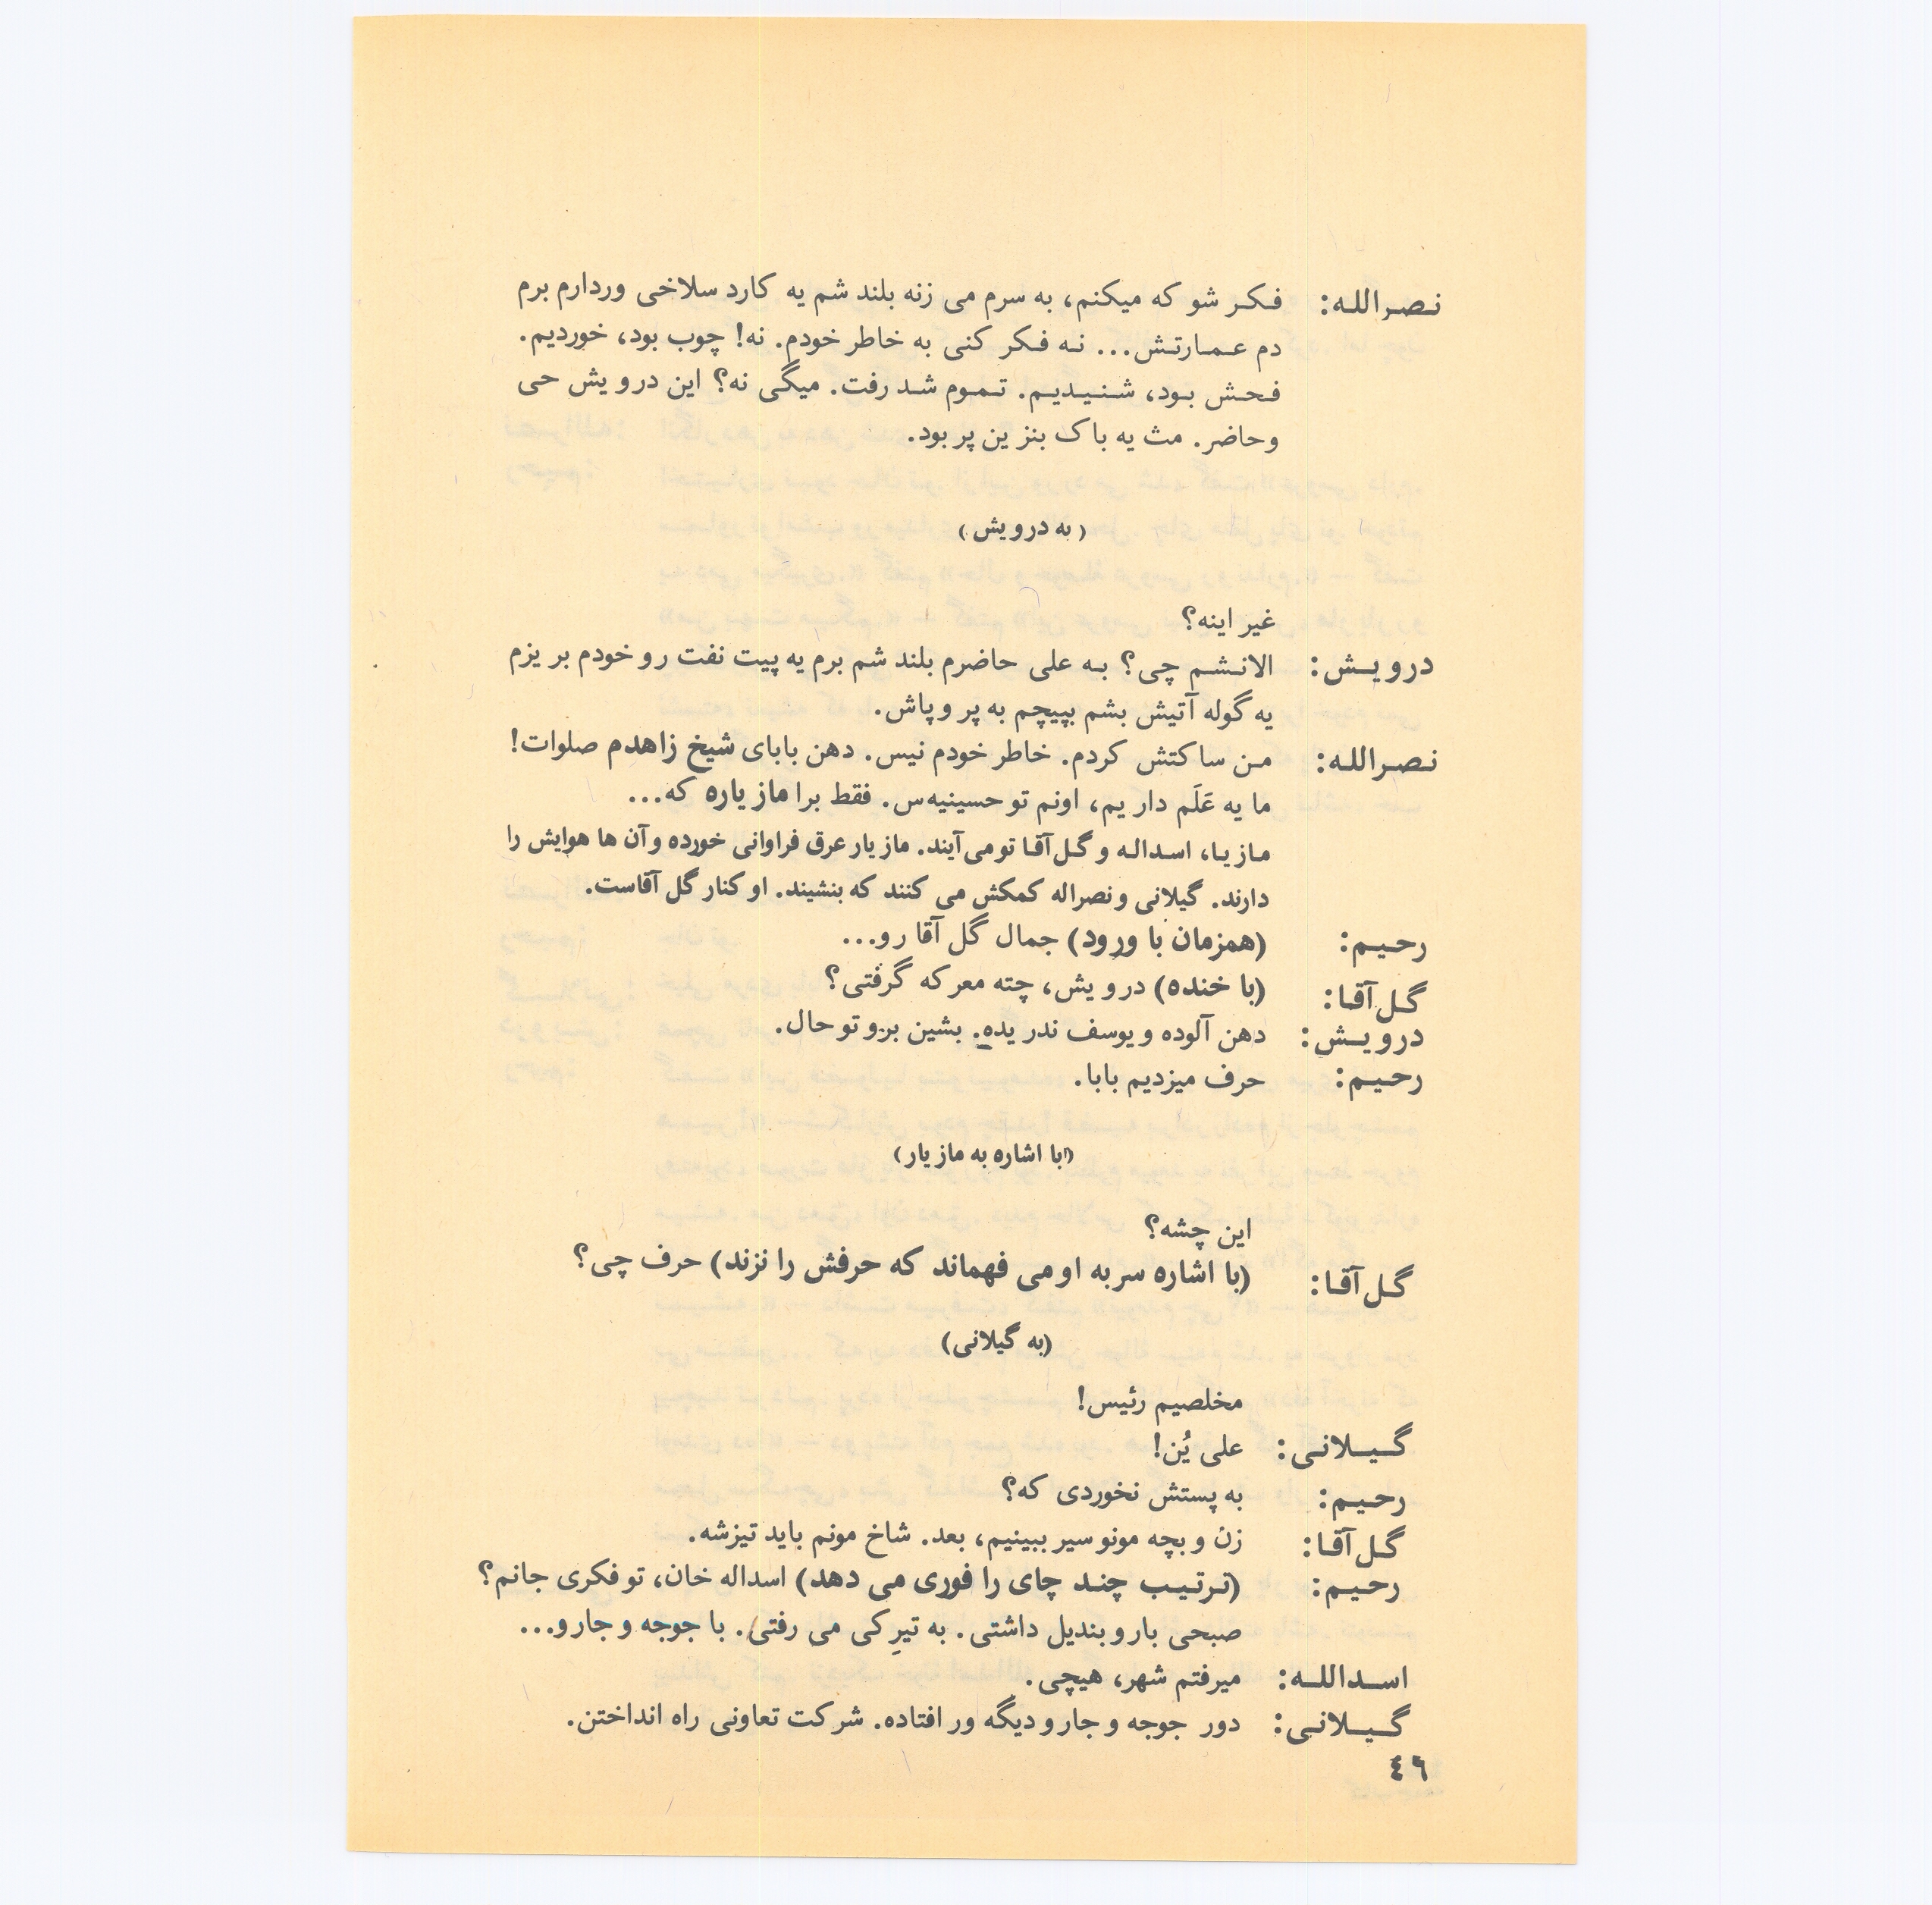 نصرالله: فکر شو که میکنم، به سرم می زنه بلند شم یه کارد سلاخی وردارم برم
دم عمارتش... نه فکر کنی به خاطر خودم. نه! چوب بود، خوردیم.
فحش بود، شنیدیم. تموم شد رفت. میگی نه؟ این درویش حی
وحاضر. مث یه باک بنزین پر بود.
(به درویش)
غیر اینه؟
درویش: الانشم چی؟ به علی حاضرم بلند شم برم یه پیت نفت رو خودم بریزم
یه گوله آتیش بشم بپیچم به پر و پاش.
نصرالله: من ساکتش کردم. خاطر خودم نیس. دهن بابای شیخ زاهدم صلوات!
ما یه عَلَم داریم، اونم تو حسینیه‌س. فقط برا مازیاره که...
مازیا، اسداله و گل‌آقا تو می‌آیند. مازیار عرق فراوانی خورده و آن ها هوایش را
دارند. گیلانی و نصراله کمکش می کنند که بنشیند. او کنار گل آقاست.
رحیم: (همزمان با ورود) جمال گل آقا رو...
گل‌آقا: (با خنده) درویش، چته معرکه گرفتی؟
درویش: دهن آلوده و یوسف ندریده. بشین برو تو حال.
رحیم: حرف میزدیم بابا.
(با اشاره به مازیار)
این چشه؟
گل‌آقا: (با اشاره سر به او می فهماند که حرفش را نزند) حرف چی؟
(به گیلانی)
مخلصیم رئیس!
گیلانی: علی یُن!
رحیم: به پستش نخوردی که؟
گل‌آقا: زن و بچه مونو سیر ببینیم، بعد. شاخ مونم باید تیزشه.
رحیم: (ترتیب چند چای را فوری می دهد) اسداله خان، تو فکری جانم؟
صبحی بار و بندیل داشتی. به تیرِکی می رفتی. با جوجه و جارو...
اسدالله: میرفتم شهر، هیچی.
گیلانی: دور جوجه و جارو دیگه ور افتاده. شرکت تعاونی راه انداختن.
٤٦